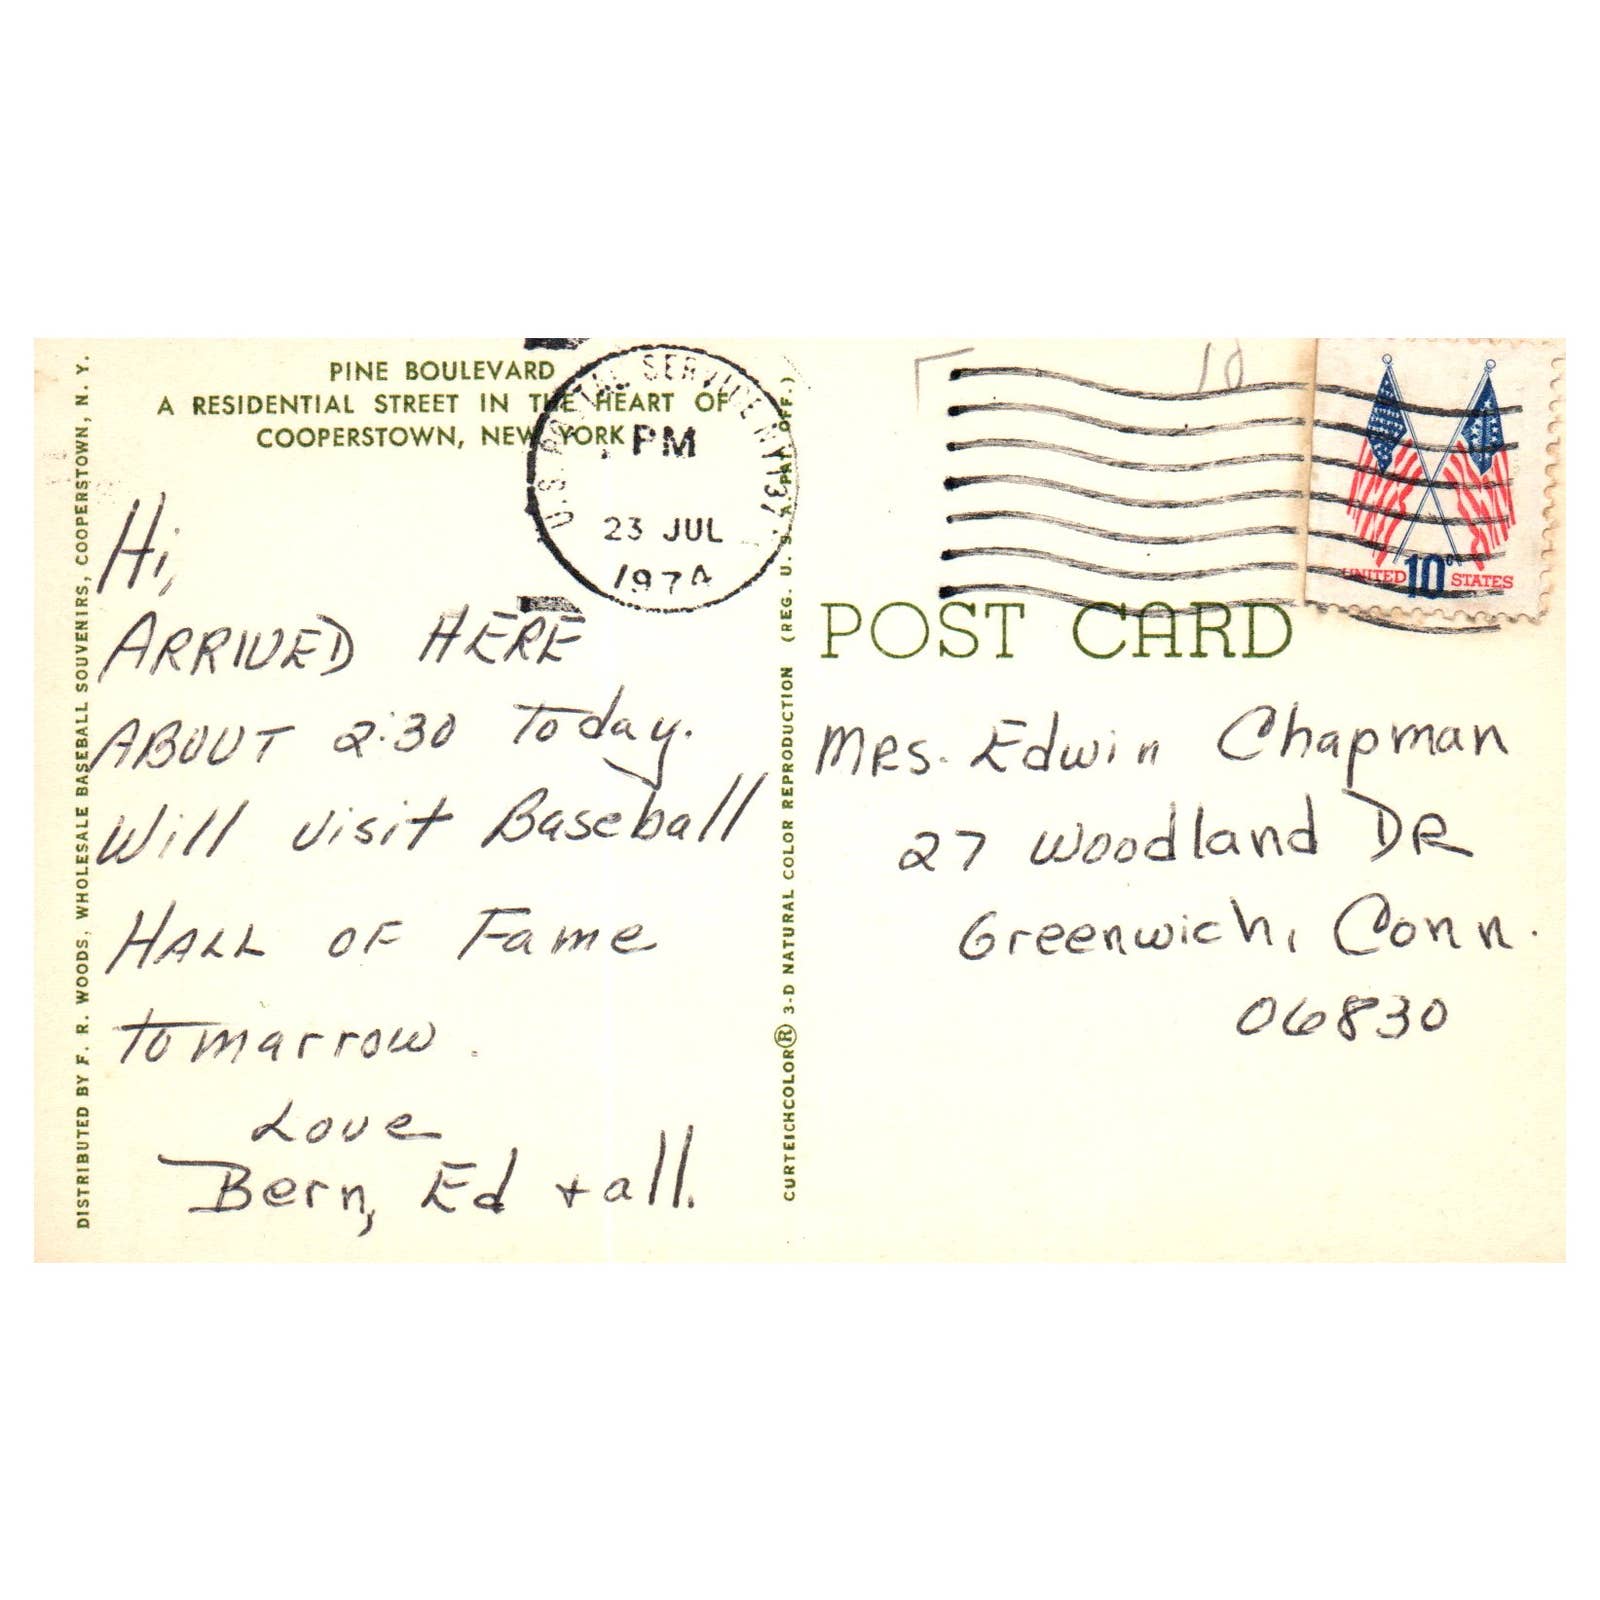 PINE BOULEVARD
A RESIDENTIAL STREET IN THE HEART OF
COOPERSTOWN, NEW YORK
Hi,
ARRIVED HERE
ABOUT 2:30 Today.
Will visit Baseball
HALL OF Fame
tomarrow.
Love
Bern, Ed + all.
DISTRIBUTED BY F. R. WOODS, WHOLESALE BASEBALL SOUVENIRS, COOPERSTOWN, N. Y.
CURTEICHCOLOR® 3-D NATURAL COLOR REPRODUCTION (REG. U. S. A. PAT. OFF.)
U.S. POSTAL SERVICE NY 137
PM
23 JUL
1974
10
UNITED 10c STATES
POST CARD
MRS. Edwin Chapman
27 Woodland DR
Greenwich, Conn.
06830